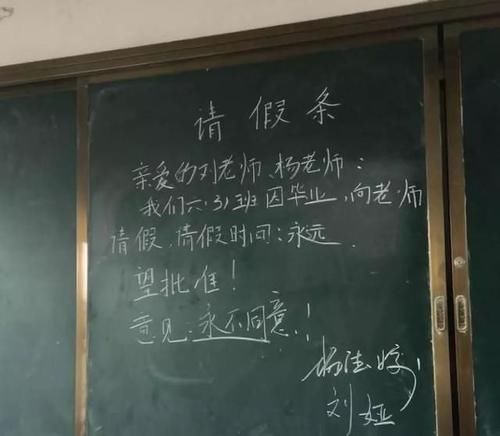 请假条
亲爱的刘老师、杨老师：
我们六.31班因毕业，向老师
请假，请假时间：永远.
望批准！
意见：永不同意！
刘娅